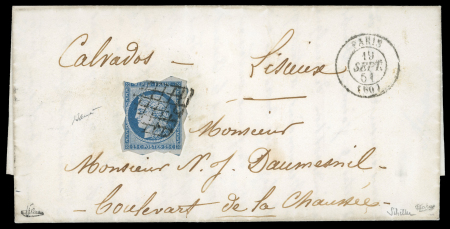 PARIS
19
SEPT.
51
(60)
Calvados - Lisieux
25 C POSTES 25 C
Monsieur
Monsieur N. J. Daumesnil -
- Boulevart de la Chaussée -